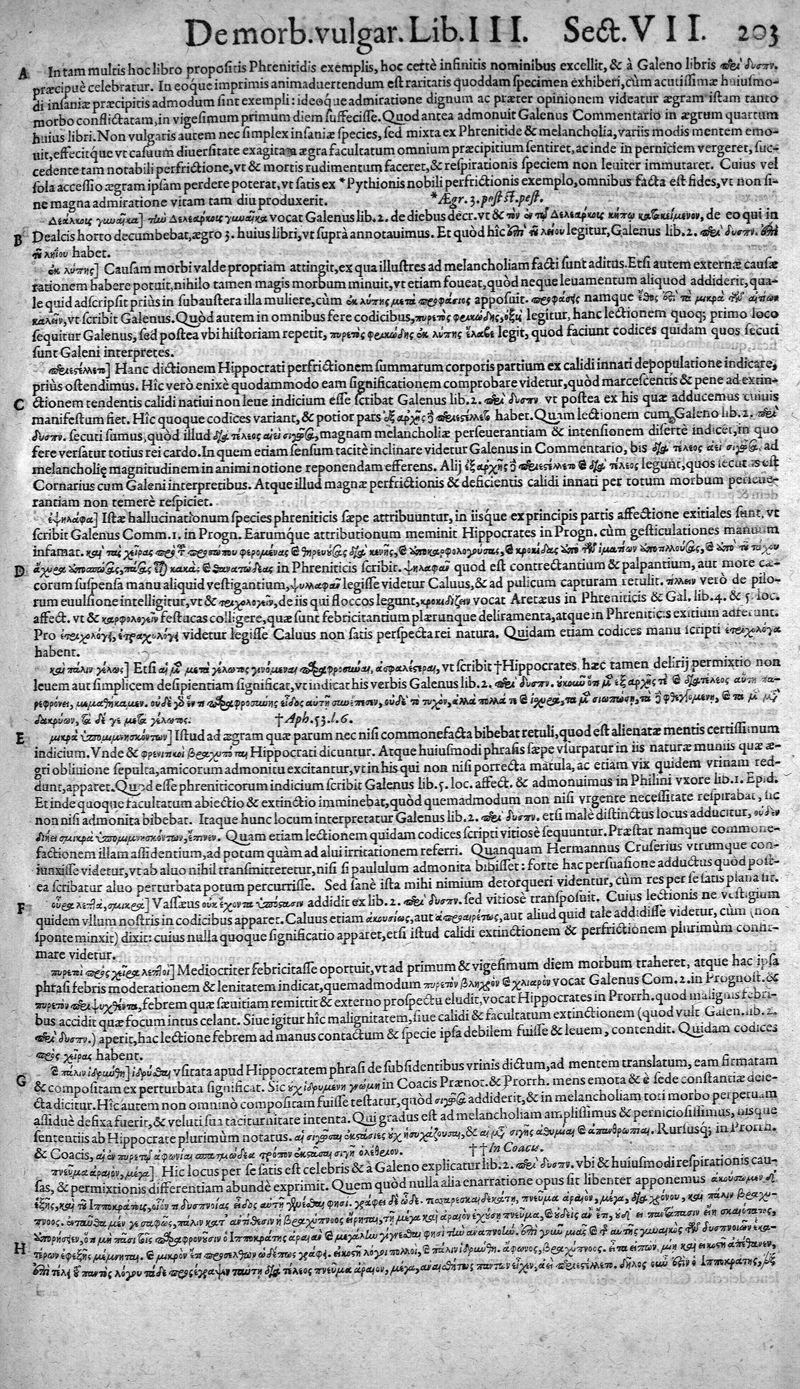 De morb. vulgar. Lib. III. Sect. VII. 203
A In tam multis hoc libro propositis Phrenitidis exemplis, hoc certè infinitis nominibus excellit, & à Galeno libris
præcipuè celebratur. In eoque imprimis animaduertendum est raritatis quoddam specimen exhiberi, cùm acutissimæ huiusmo-
di insaniæ præcipitis admodum sint exempli: ideoque admiratione dignum ac præter opinionem videatur ægram istam tanto
morbo conflictatam, in vigesimum primum diem suffecisse. Quod antea admonuit Galenus Commentario in ægrum quartum
huius libri. Non vulgaris autem nec simplex insaniæ species, sed mixta ex Phrenitide & melancholia, variis modis mentem emo-
uit, effecitque vt casuum diuersitate exagitata ægra facultatum omnium præcipitium sentiret, ac inde in perniciem vergeret, suc-
cedente tam notabili perfrictione, vt & mortis rudimentum faceret, & respirationis speciem non leuiter immutaret. Cuius vel
sola accessio ægram ipsam perdere poterat, vt satis ex *Pythionis nobili perfrictionis exemplo, omnibus facta est fides, vt non si-
ne magna admiratione vitam tam diu produxerit. *Ægr. 3. post st. pest.
vocat Galenus lib. 2. de diebus decr. vt & de eo qui in
B Dealcis horto decumbebat, ægro 3. huius libri, vt suprà annotauimus. Et quòd hîc legitur, Galenus lib. 2.
habet.
ἐκ λύπης] Causam morbi valde propriam attingit, ex qua illustres ad melancholiam facti sunt aditus. Etsi autem externæ causæ
rationem habere potuit, nihilo tamen magis morbum minuit, vt etiam foueat, quòd neque leuamentum aliquod addiderit, qua-
le quid adscripsit priùs in subaustera illa muliere, cùm ἐκ λύπης μετὰ προφάσιος apposuit. προφάσης namque
vt scribit Galenus. Quòd autem in omnibus fere codicibus, legitur, hanc lectionem quoq; primo loco
sequitur Galenus, sed postea vbi historiam repetit, πυρετὸς φρικώδης ἐκ λύπης ἔλαβε legit, quod faciunt codices quidam quos secuti
sunt Galeni interpretes.
Hanc dictionem Hippocrati perfrictionem summarum corporis partium ex calidi innati depopulatione indicare,
priùs ostendimus. Hîc verò enixè quodammodo eam significationem comprobare videtur, quòd marcescentis & pene ad extin-
C ctionem tendentis calidi natiui non leue indicium esse scribat Galenus lib. 2. vt postea ex his quæ adducemus cuiuis
manifestum fiet. Hîc quoque codices variant, & potior pars habet. Quam lectionem cum Galeno lib. 2.
secuti sumus, quòd illud magnam melancholiæ perseuerantiam & intensionem disertè indicet, in quo
fere versatur totius rei cardo. In quem etiam sensum tacitè inclinare videtur Galenus in Commentario, bis ad
melancholię magnitudinem in animi notione reponendam efferens. Alij legunt, quos secutus est
Cornarius cum Galeni interpretibus. Atque illud magnæ perfrictionis & deficientis calidi innati per totum morbum perseue-
rantiam non temerè respiciet.
ἐψηλάφα] Istæ hallucinationum species phreniticis sæpe attribuuntur, in iisque ex principis partis affectione exitiales sunt, vt
scribit Galenus Com. 1. in Progn. Earumque attributionum meminit Hippocrates in Progn. cùm gesticulationes manuum
infamat.
D in Phreniticis scribit. quod est contrectantium & palpantium, aut more cæ-
corum suspensa manu aliquid vestigantium, legisse videtur Caluus, & ad pulicum capturam retulit. verò de pilo-
rum euulsione intelligitur, vt & de iis qui floccos legunt, κροκιδίζειν vocat Aretæus in Phreniticis & Gal. lib. 4. & 5. loc.
affect. vt & καρφολογεῖν festucas colligere, quæ sunt febricitantium plærunque deliramenta, atque in Phreniticis exitium adferunt.
Pro videtur legisse Caluus non satis perspecta rei natura. Quidam etiam codices manu scripti
habent.
καὶ πάλιν γέλως] Etsi vt scribit †Hippocrates hæc tamen delirij permixtio non
leuem aut simplicem desipientiam significat, vt indicat his verbis Galenus lib. 2.
†Aph. 53. l. 6.
E Istud ad ægram quæ parum nec nisi commonefacta bibebat retuli, quod est alienatæ mentis certissimum
indicium. Vnde & φρενιτικοὶ βραχυπόται Hippocrati dicuntur. Atque huiusmodi phrasis sæpe vsurpatur in iis naturæ muniis quæ æ-
gri obliuione sepulta, amicorum admonitu excitantur, vt in his qui non nisi porrecta matula, ac etiam vix quidem vrinam red-
dunt, apparet. Quod esse phreniticorum indicium scribit Galenus lib. 5. loc. affect. & admonuimus in Philini vxore lib. 1. Epid.
Et inde quoque facultatum abiectio & extinctio imminebat, quòd quemadmodum non nisi vrgente necessitate respirabat, sic
non nisi admonita bibebat. Itaque hunc locum interpretatur Galenus lib. 2. etsi male distinctus locus adducitur,
Quam etiam lectionem quidam codices scripti vitiosè sequuntur. Præstat namque commone-
factionem illam assidentium, ad potum quàm ad alui irritationem referri. Quanquam Hermannus Cruserius vtrumque con-
iunxisse videtur, vt ab aluo nihil transmitteretur, nisi si paululum admonita bibisset: forte hac persuasione adductus quod post-
ea scribatur aluo perturbata potum percurrisse. Sed sanè ista mihi nimium detorqueri videntur, cùm res per se satis plana sit.
F οὖρα λεπτὰ, σμικρὰ] Vassæus οὐκ ἔχοντα ὑπόστασιν addidit ex lib. 2. sed vitiosè transposuit. Cuius lectionis ne vestigium
quidem vllum nostris in codicibus apparet. Caluus etiam ἀκουσίως, aut ἀπροαιρέτως, aut aliud quid tale addidisse videtur, cùm (non
sponte minxit) dixit: cuius nulla quoque significatio apparet, etsi istud calidi extinctionem & perfrictionem plurimùm confir-
mare videtur.
Mediocriter febricitasse oportuit, vt ad primum & vigesimum diem morbum traheret, atque hac ipsa
phrasi febris moderationem & lenitatem indicat, quemadmodum vocat Galenus Com. 2. in Prognost. &
febrem quæ sæuitiam remittit & externo prospectu eludit, vocat Hippocrates in Prorrh. quod malignis febri-
bus accidit quæ focum intus celant. Siue igitur hîc malignitatem, siue calidi & facultatum extinctionem (quod vult Galen. lib. 2.
) aperit, hac lectione febrem ad manus contactum & specie ipsa debilem fuisse & leuem, contendit. Quidam codices
πρὸς χεῖρας habent.
vsitata apud Hippocratem phrasi de subsidentibus vrinis dictum, ad mentem translatum, eam firmatam
G & compositam ex perturbata significat. Sic in Coacis Prænot. & Prorrh. mens emota & è sede constantiæ deie-
cta dicitur. Hîc autem non omninò compositam fuisse testatur, quòd addiderit, & in melancholiam toti morbo perpetuam
assiduè defixa fuerit, & veluti sua taciturnitate intenta. Qui gradus est ad melancholiam amplissimus & perniciosissimus, iisque
sententiis ab Hippocrate plurimùm notatus. Rursusq; in Prorrh.
& Coacis, ††In Coacis.
πνεῦμα ἀραιὸν, μέγα] Hic locus per se satis est celebris & à Galeno explicatur lib. 2. vbi & huiusmodi respirationis cau-
sas, & permixtionis differentiam abundè exprimit. Quem quòd nulla alia enarratione opus sit libenter apponemus
H